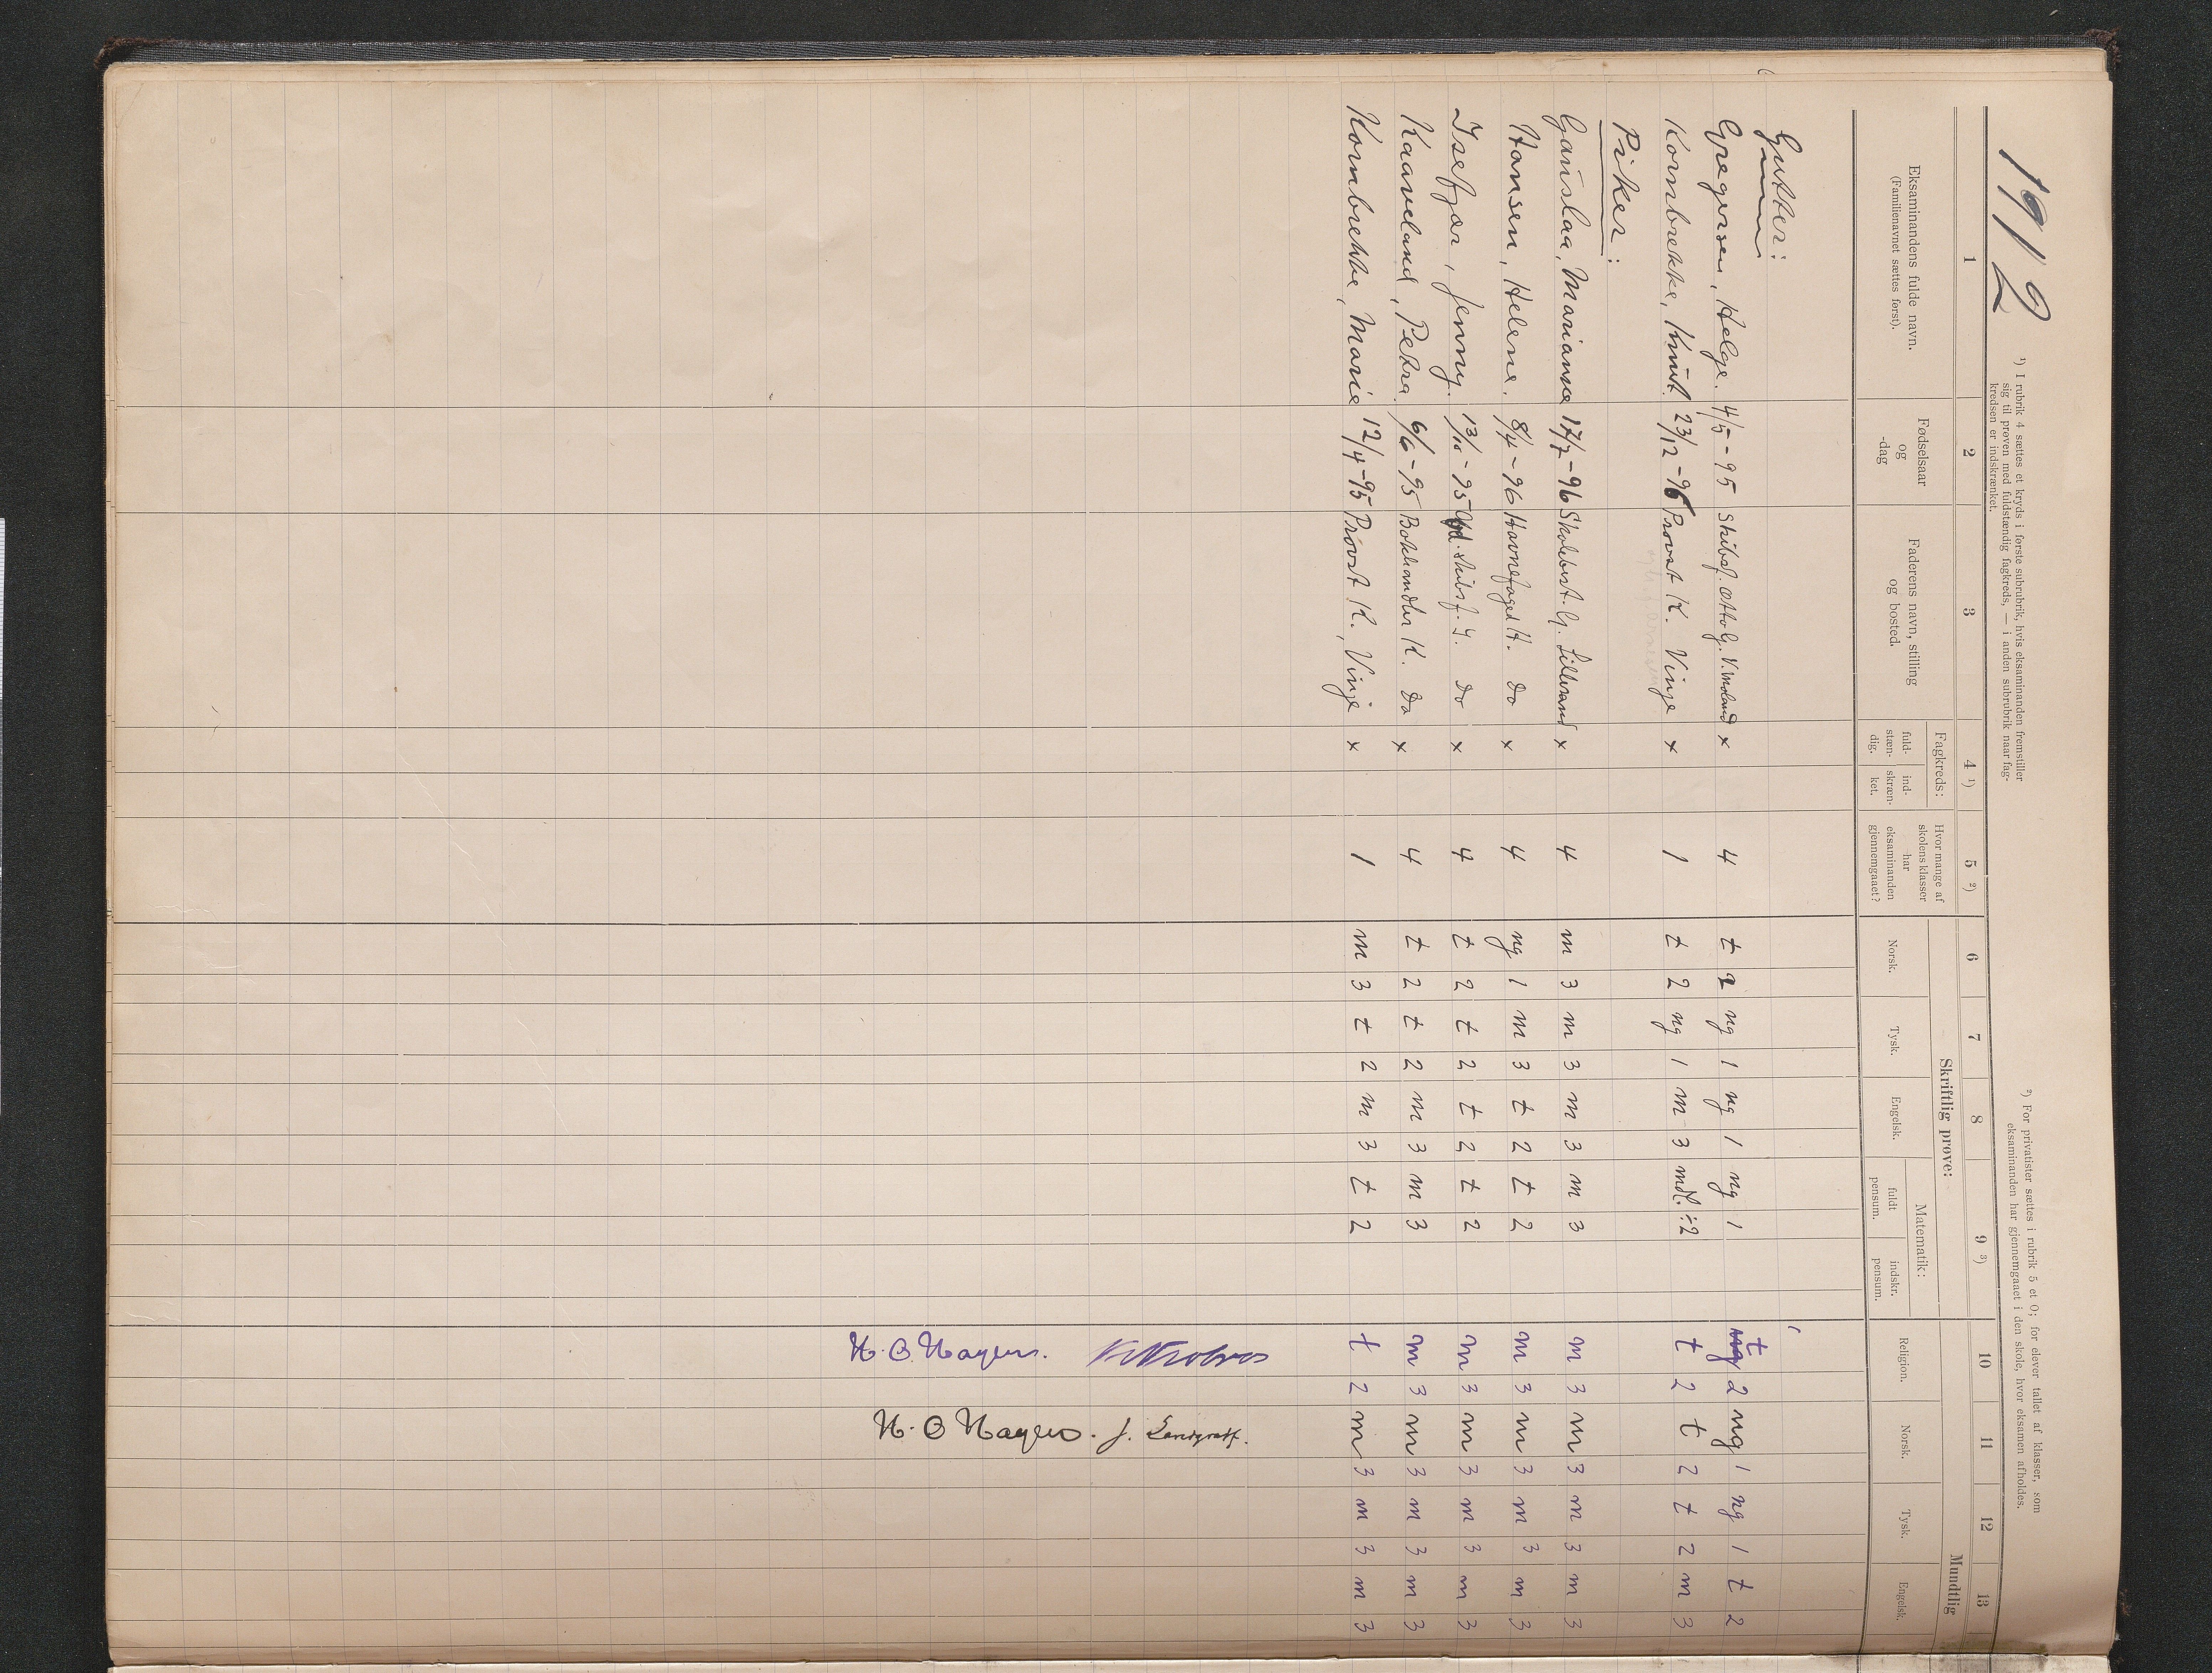 1912
¹) I rubrik 4 sættes et kryds i første subrubrik, hvis eksaminanden fremstiller
sig til prøven med fuldstændig fagkreds, — i anden subrubrik naar fag-
kredsen er indskrænket.
²) For privatister sættes i rubrik 5 et 0; for elever tallet af klasser, som
eksaminanden har gjennemgaaet i den skole, hvor eksamen afholdes.
1 2 3 4 ¹) 5 ²) 6 7 8 9 ³) 10 11 12 13
Eksaminandens fulde navn.
(Familienavnet sættes først).
Fødselsaar
og
-dag
Faderens navn, stilling
og bosted.
Fagkreds:
fuld-
stæn-
dig.
ind-
skræn-
ket.
Hvor mange af
skolens klasser
har
eksaminanden
gjennemgaaet?
Skriftlig prøve:
Norsk.
Tysk.
Engelsk.
Matematik:
fuldt
pensum.
indskr.
pensum.
Mundtlig
Religion.
Norsk.
Tysk.
Engelsk.
Gutter:
Gregersen, Helge. 4/5-95 Skibsf. Otto G. V. Moland x 4 t 2 ng 1 ng 1 ng 1 t 2 ng 1 ng 1 t 2
Kornbrekke, Knut. 23/12-96 Provst K. Vinje x 1 t 2 ng 1 m 3 mdl. ÷2 t 2 t 2 t 2 m 3
Piker:
Gauslaa, Marianne 17/7-96 Skolebest. G. Lillesand x 4 m 3 m 3 m 3 m 3 m 3 m 3 m 3 m 3
Hansen, Helene. 8/4-96 Havnefoged H. do x 4 ng 1 m 3 t 2 t 2 m 3 m 3 m 3 m 3
Isefjær, Jenny. 13/10-95 skibsf. I. do x 4 t 2 t 2 t 2 t 2 m 3 m 3 m 3 m 3
Kaaveland, Petra. 6/6-95 Bokhandler K. do x 4 t 2 t 2 m 3 m 3 m 3 m 3 m 3 m 3
Kornbrekke, Marie 12/4-95 Provst K. Vinje x 1 m 3 t 2 m 3 t 2 t 2 m 3 m 3 m 3
H. O. Hagers.
H. O Hagers. J. Landgraff.